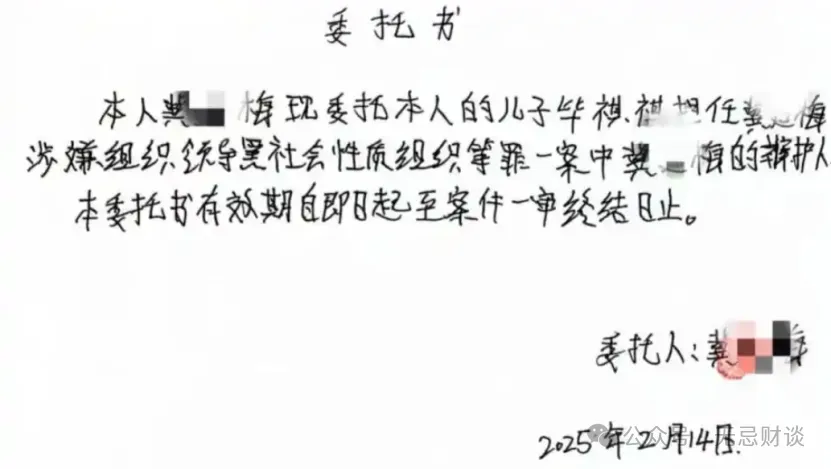 委托书
本人龚 梅现委托本人的儿子毕祺祺担任 梅
涉嫌组织、领导黑社会性质组织等罪一案中龚 梅的辩护人
本委托书有效期自即日起至案件一审终结日止。
委托人:龚
2025年2月14日.
公众号 无忌财谈